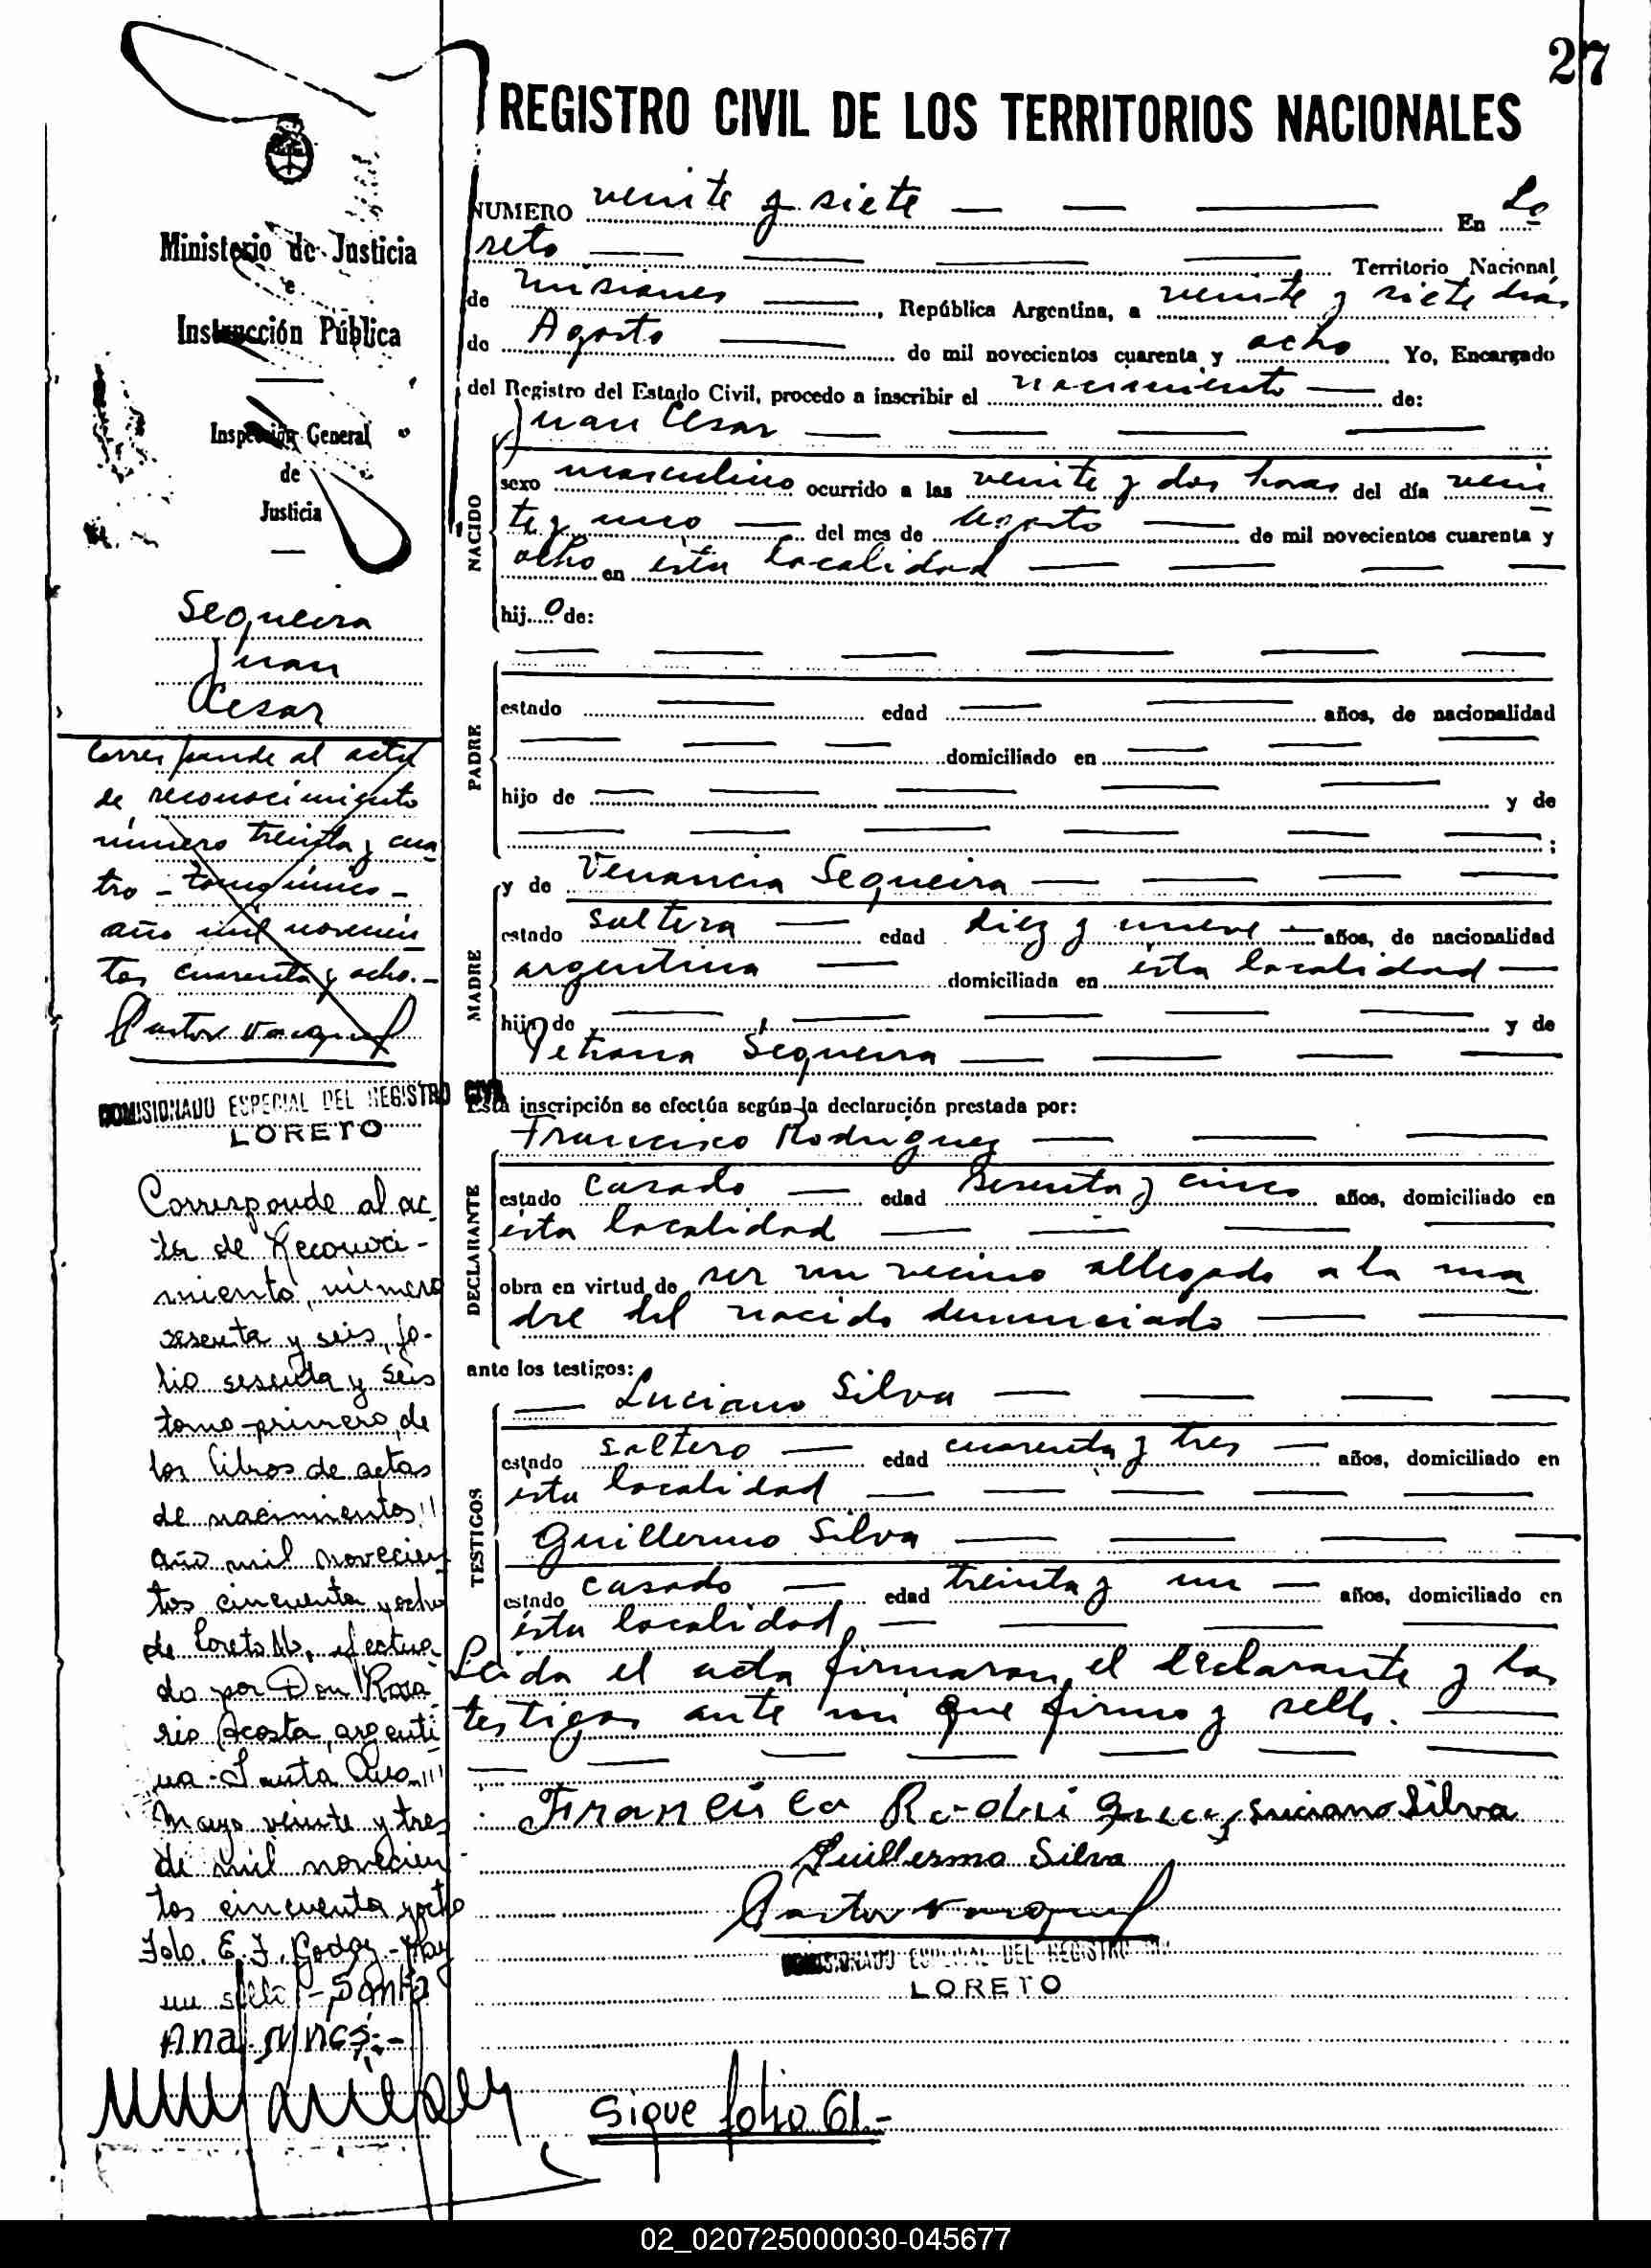 27
REGISTRO CIVIL DE LOS TERRITORIOS NACIONALES
Ministerio de Justicia
e
Instrucción Pública
Inspección General
de
Justicia
Sequeira
Juan
Cesar
Corresponde al acta
de reconocimiento
número treinta y cua
tro - tomo único -
año mil novecien
tos cuarenta y ocho.-
Pastor
COMISIONADO ESPECIAL DEL REGISTRO CIVIL
LORETO
Corresponde al ac-
ta de Reconoci-
miento, número
sesenta y seis, fo-
lio sesenta y seis
tomo primero, de
los libros de actas
de nacimientos
año mil novecien
tos cincuenta y ocho
de Loreto Ms. efectua
do por Don Rosa-
rio Acosta, argenti
na - Santa Ana
mayo veinte y tres
de mil novecien
tos cincuenta y ocho
Fdo. E. J. Godoy - Hay
un sello - Santa
Ana, Mnes.-
NUMERO veinte y siete En Lo
reto Territorio Nacional
de Misiones, República Argentina, a veinte y siete dias
de Agosto de mil novecientos cuarenta y ocho Yo, Encargado
del Registro del Estado Civil, procedo a inscribir el nacimiento de:
NACIDO
Juan Cesar
sexo masculino ocurrido a las veinte y dos horas del día vein
te y uno del mes de Agosto de mil novecientos cuarenta y
ocho en ésta localidad
hijo de:
PADRE
estado edad años, de nacionalidad
domiciliado en
hijo de y de
;
MADRE
y de Venancia Sequeira
estado soltera edad diez y nueve años, de nacionalidad
argentina domiciliada en ésta localidad
hija de y de
Petrona Sequeira
Esta inscripción se efectúa según la declaración prestada por:
DECLARANTE
Francisco Rodriguez
estado casado edad sesenta y cinco años, domiciliado en
ésta localidad
obra en virtud de ser un vecino allegado a la ma
dre del nacido denunciado
ante los testigos:
TESTIGOS
Luciano Silva
estado soltero edad cuarenta y tres años, domiciliado en
ésta localidad
Guillermo Silva
estado casado edad treinta y un años, domiciliado en
ésta localidad
Leida el acta firmaron, el declarante y los
testigos ante mi que firmo y sello.
Francisco Rodriguez Luciano Silva
Guillermo Silva
Pastor
COMISIONADO ESPECIAL DEL REGISTRO CIVIL
LORETO
Sigue folio 61.-
02_020725000030-045677